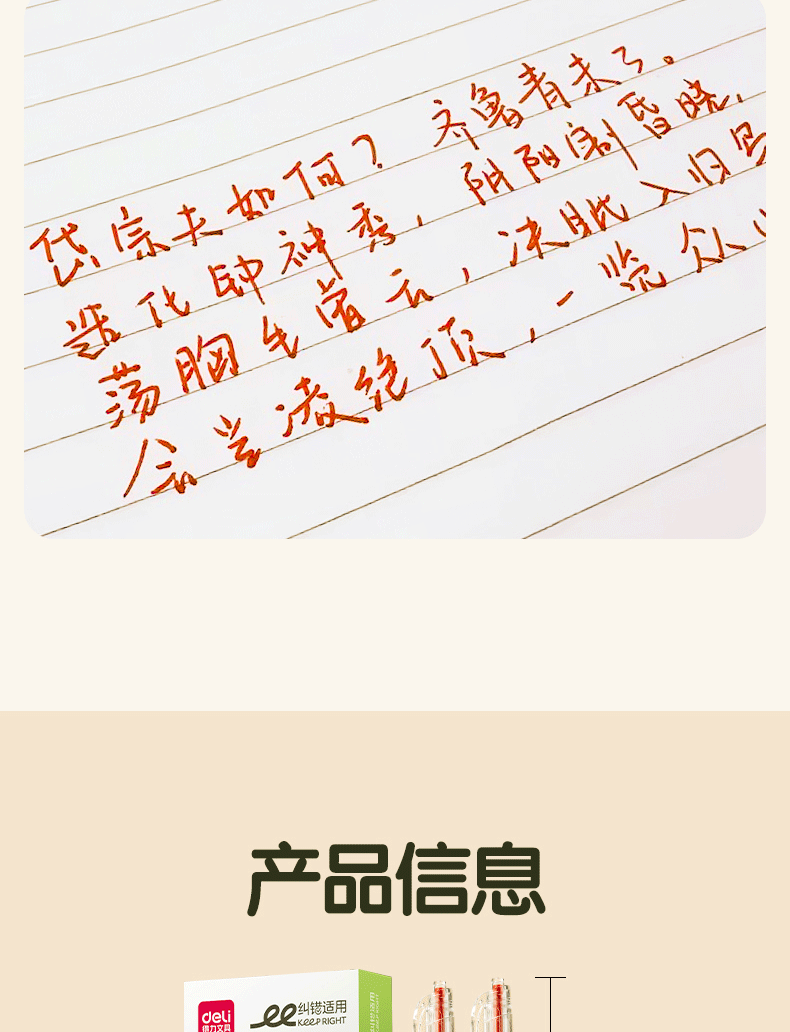 岱宗夫如何？齐鲁青未了。
造化钟神秀，阴阳割昏晓，
荡胸生曾云，决眦入归鸟
会当凌绝顶，一览众
产品信息
deli
得力文具
ee纠错适用
KEEP RIGHT
纠错适用
KEEP RIGHT